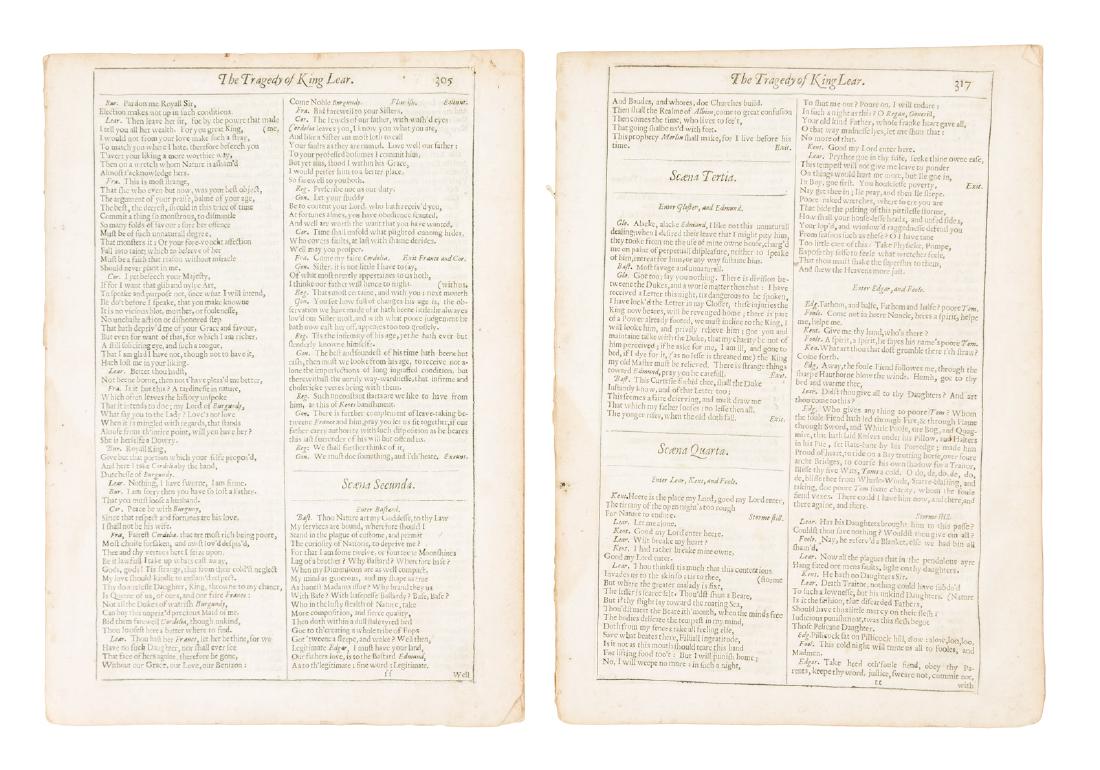 The Tragedy of King Lear.
305
Bur. Pardon me Royall Sir,
Election makes not up in such conditions.
Lear. Then leave her sir, for by the powre that made
I tell you all her wealth. For you great King, (me,
I would not from your love make such a stray,
To match you where I hate, therefore beseech you
T'avert your liking a more worthier way,
Then on a wretch whom Nature is asham'd
Almost t'acknowledge hers.
Fra. This is most strange,
That she who even but now, was your best object,
The argument of your praise, balme of your age,
The best, the deerest, should in this trice of time
Commit a thing so monstrous, to dismantle
So many folds of favour: sure her offence
Must be of such unnaturall degree,
That monsters it: Or your fore-voucht affection
Fall into taint; which to beleeve of her
Must be a faith that reason without miracle
Should never plant in me.
Cor. I yet beseech your Majesty,
If for I want that glib and oylie Art,
To speake and purpose not, since what I will intend,
Ile do't before I speake, that you make knowne
It is no vicious blot, mother, or foulenesse,
No unchaste action or dishonored step
That hath depriv'd me of your Grace and favour,
But even for want of that, for which I am richer,
A still soliciting eye, and such a tongue,
That I am glad I have not, though not to have it,
Hath lost me in your liking.
Lear. Better thou hadst,
Not beene borne, then not t'have pleas'd me better,
Fra. Is it but this? A tardinesse in nature,
Which often leaves the history unspoke
That it intends to do: my Lord of Burgundy,
What say you to the Lady? Love's not love
When it is mingled with regards, that stands
Aloofe from th'intire point, will you have her?
She is herselfe a Dowry.
Bur. Royall King,
Give but that portion which your selfe propos'd,
And here I take Cordelia by the hand,
Dutchesse of Burgundy.
Lear. Nothing, I have sworne, I am firme.
Bur. I am sorry then you have so lost a Father.
That you must loose a husband.
Cor. Peace be with Burgundy,
Since that respect and fortunes are his love,
I shall not be his wife.
Fra. Fairest Cordelia, that art most rich being poore,
Most choise forsaken, and most lov'd despis'd,
Thee and thy vertues here I seize upon.
Be it lawfull I take up whats cast away,
Gods, gods! Tis strange, that from their cold'st neglect
My love should kindle to enflam'd respect.
Thy dowrelesse Daughter, King, throwne to my chance,
Is Queene of us, of ours, and our faire France:
Not all the Dukes of watrish Burgundy,
Can buy this unpriz'd precious Maid of me.
Bid them farewell Cordelia, though unkind,
Thou loosest here a better where to find.
Lear. Thou hast her France, let her be thine, for we
Have no such Daughter, nor shall ever see
That face of hers againe, therefore be gone,
Without our Grace, our Love, our Benizon:
Come Noble Burgundy. Flourish. Exeunt.
Fra. Bid farewell to your Sisters.
Cor. The Jewels of our father, with wash'd eyes
Cordelia leaves you, I know you what you are,
And like a Sister am most loth to call
Your faults as they are named. Love well our father:
To your professed bosomes I commit him,
But yet alas, stood I within his Grace,
I would prefer him to a better place.
So farewell to you both.
Reg. Prescribe not us our duty.
Gon. Let your study
Be to content your Lord, who hath receiv'd you,
At fortunes almes, you have obedience scanted,
And well are worth the want that you have wanted.
Cor. Time shall unfold what plighted cunning hides,
Who covers faults, at last with shame derides.
Well may you prosper.
Fra. Come my faire Cordelia. Exit France and Cor.
Gon. Sister, it is not little I have to say,
Of what most neerly appertaines to us both,
I thinke our father will hence to night. (with us.
Reg. That's most certaine, and with you: next moneth
Gon. You see how full of changes his age is, the ob-
servation we have made of it hath beene little; he alwayes
lov'd our Sister most, and with what poore judgement he
hath now cast her off, appeares too too grossely.
Reg. Tis the infirmity of his age, yet he hath ever but
slenderly knowne himselfe.
Gon. The best and soundest of his time hath beene but
rash, then must we looke from his age, to receive not a-
lone the imperfections of long ingraffed condition, but
therewithall the unruly way-wardnesse, that infirme and
cholericke yeeres bring with them.
Reg. Such unconstant starts we are like to have from
him, as this of Kents banishment.
Gon. There is further complement of leave-taking be-
tweene France and him, pray you let us sit together, if our
father carry authority with such disposition as he beares
this last surrender of his will but offend us.
Reg. We shall further thinke of it,
Gon. We must doe something, and i'th'heate. Exeunt.
Scæna Secunda.
Enter Bastard.
Bast. Thou Nature art my Goddesse, to thy Law
My services are bound, wherefore should I
Stand in the plague of custome, and permit
The curiosity of Nations, to deprive me?
For that I am some twelve, or fourteene Moonshines
Lag of a brother? Why Bastard? Wherefore base?
When my Dimensions are as well compact,
My mind as generous, and my shape as true
As honest Madams issue? Why brand they us
With Base? With basenesse Bastardy? Base, Base?
Who in the lusty stealth of Nature, take
More composition, and fierce quality,
Then doth within a dull stale tyred bed
Goe to th'creating a whole tribe of Fops
Got 'tweene a sleepe, and wake? Well then,
Legitimate Edgar, I must have your land,
Our fathers love, is to the Bastard Edmond,
As to th'legitimate: fine word: Legitimate.
ff
Well
The Tragedy of King Lear.
317
And Baudes, and whores, doe Churches build.
Then shall the Realme of Albion, come to great confusion
Then comes the time, who lives to see't,
That going shalbe us'd with feet.
This prophecy Merlin shall make, for I live before his
time. Exit.
Scæna Tertia.
Enter Gloster, and Edmund.
Glo. Alacke, alacke Edmund, I like not this unnaturall
dealing; when I desired their leave that I might pity him,
they tooke from me the use of mine owne house, charg'd
me on paine of perpetuall displeasure, neither to speake
of him, entreat for him, or any way sustaine him.
Bast. Most savage and unnaturall.
Glo. Goe too; say you nothing. There is division be-
tweene the Dukes, and a worse matter then that: I have
received a Letter this night, tis dangerous to be spoken,
I have lock'd the Letter in my Closset, these injuries the
King now beares, will be revenged home; there is part
of a Power already footed, we must incline to the King, I
will looke him, and privily releive him; goe you and
maintaine talke with the Duke, that my charity be not of
him perceived; if he aske for me, I am ill, and gone to
bed, if I dye for it, (as no lesse is threatned me) the King
my old Master must be relieved. There is strange things
toward Edmund, pray you be carefull. Exit.
Bast. This Curtesie forbid thee, shall the Duke
Instantly know, and of that Letter too;
This seemes a faire deserving, and must draw me
That which my father looses: no lesse then all.
The yonger rises, when the old doth fall. Exit.
Scæna Quarta.
Enter Lear, Kent, and Foole.
Kent. Heere is the place my Lord, good my Lord enter,
The tirrany of the open night's too rough
For Nature to endure. Storme still.
Lear. Let me alone.
Kent. Good my Lord enter heere.
Lear. Wilt breake my heart?
Kent. I had rather breake mine owne,
Good my Lord enter.
Lear. Thou think'st tis much that this contentious
Invades us to the skin so: tis to thee, (storme
But where the greater malady is fixt,
The lesser is scarce felt. Thou'dst shun a Beare,
But if thy flight lay toward the roaring Sea,
Thou'dst meete the Beare ith'mouth, when the mind's free
The bodies delicate: the tempest in my mind,
Doth from my sences take all feeling else,
Save what beates there, Filiall ingratitude,
Is it not as this mouth should teare this hand
For lifting food too't: But I will punish home;
No, I will weepe no more: in such a night,
To shut me out? Poure on, I will endure:
In such a night as this? O Regan, Gonerill,
Your old kind Father, whose franke heart gave all,
O that way madnesse lyes, let me shun that:
No more of that.
Kent. Good my Lord enter here.
Lear. Prythee goe in thy selfe, seeke thine owne ease,
This tempest will not give me leave to ponder
On things would hurt me more, but Ile goe in,
In Boy, goe first. You houselesse poverty, Exit.
Nay get thee in; Ile pray, and then Ile sleepe.
Poore naked wretches, where so ere you are
That bide the pelting of this pittilesse storme,
How shall your house-lesse heads, and unfed sides,
Your lop'd, and window'd raggednesse defend you
From seasons such as these? O I have tane
Too little care of this: Take Physicke, Pompe,
Expose thy selfe to feele what wretches feele,
That thou maist shake the superflux to them,
And shew the Heavens more just.
Enter Edgar, and Foole.
Edg. Fathom, and halfe, Fathom and halfe? poore Tom.
Foole. Come not in heere Nuncle, heres a spirit, helpe
me, helpe me.
Kent. Give me thy hand, who's there?
Foole. A spirit, a spirit, he sayes his name's poore Tom.
Ken. What art thou that dost grumble there i'th'straw?
Come forth.
Edg. Away, the foule Fiend followes me, through the
sharpe Hauthorne blow the winds. Humh, goe to thy
bed and warme thee,
Lear. Didst thou give all to thy Daughters? And art
thou come to this?
Edg. Who gives any thing to poore Tom? Whom
the foule Fiend hath led through Fire, & through Flame
through Sword, and Whirle-Poole, ore Bog, and Quag-
mire, that hath laid Knives under his Pillow, and Halters
in his Pue, set Rats-bane by his Porredge; made him
Proud of heart, to ride on a Bay trotting horse, over foure
archt Bridges, to course his own shadow for a Traitor,
Blesse thy five Wits, Toms a cold. O do, de, do, de, do,
de, blisse thee from Whirle-Winds, Starre-blasting, and
taking, doe poore Tom some charity, whom the foule
fiend vexes. There could I have him now, and there, and
there againe, and there.
Storme still.
Lear. Has his Daughters brought him to this passe?
Couldst thou save nothing? Wouldst thou give em all?
Foole. Nay, he reserv'd a Blanket, else we had bin all
sham'd.
Lear. Now all the plagues that in the pendulous ayre
Hang fated ore mens faults, light on thy daughters.
Kent. He hath no Daughters Sir.
Lear. Death Traitor, nothing could have subdu'd
To such a lownesse, but his unkind Daughters. (Nature
Is it the fashion, that discarded Fathers,
Should have thus little mercy on their flesh:
Judicious punishment, twas this flesh begot
Those Pelicane Daughter.
Edg. Pillicock sat on Pillicock hill, alow: alow, loo, loo.
Fool. This cold night will turne us all to fooles, and
Madmen.
Edgar. Take heed oth'foule fiend, obey thy Pa-
rents, keepe thy word, justice, sweare not, commit nor,
ff
with